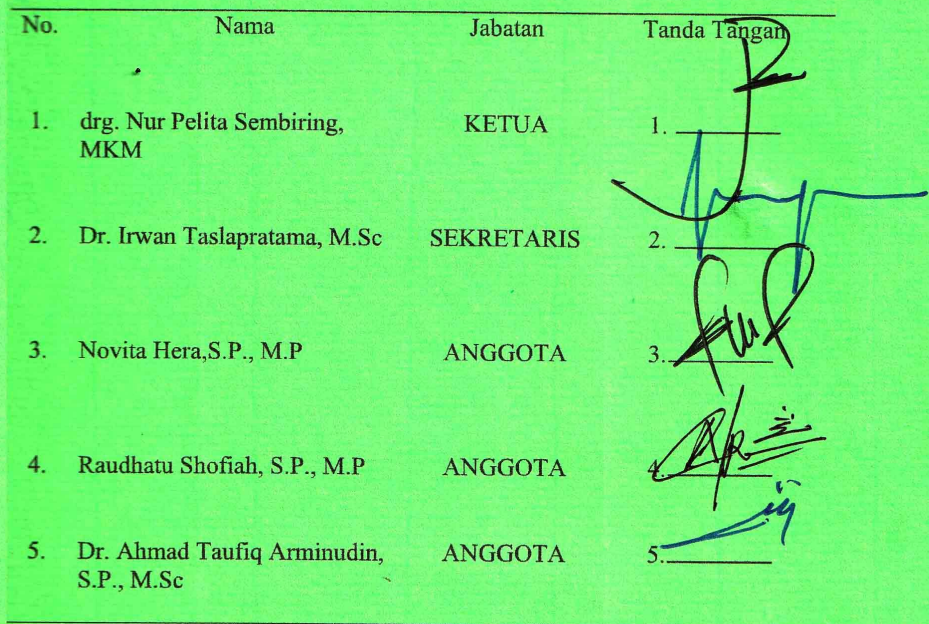 No. Nama Jabatan Tanda Tangan
1. drg. Nur Pelita Sembiring, KETUA 1.
MKM
2. Dr. Irwan Taslapratama, M.Sc SEKRETARIS 2.
3. Novita Hera,S.P., M.P ANGGOTA 3.
4. Raudhatu Shofiah, S.P., M.P ANGGOTA 4.
5. Dr. Ahmad Taufiq Arminudin, ANGGOTA 5.
S.P., M.Sc